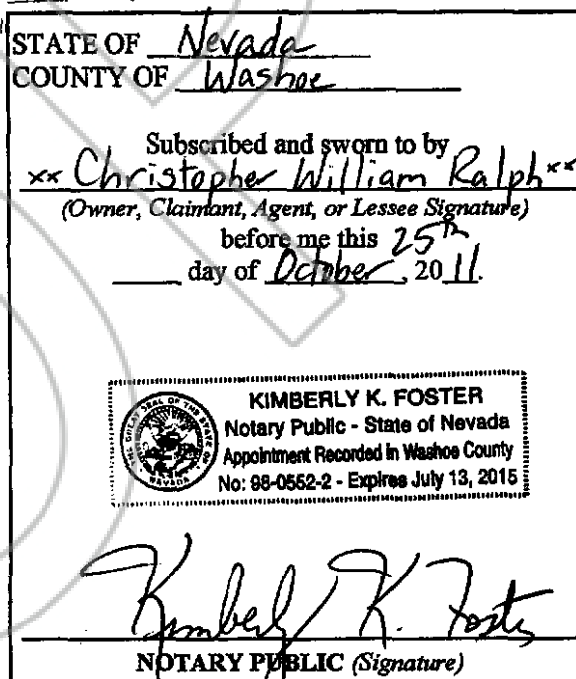 STATE OF Nevada
COUNTY OF Washoe
Subscribed and sworn to by
** Christopher William Ralph **
(Owner, Claimant, Agent, or Lessee Signature)
before me this 25th
____ day of October, 2011.
THE GREAT SEAL OF THE STATE OF NEVADA
KIMBERLY K. FOSTER
Notary Public - State of Nevada
Appointment Recorded in Washoe County
No: 98-0552-2 - Expires July 13, 2015
Kimberly K. Foster
NOTARY PUBLIC (Signature)